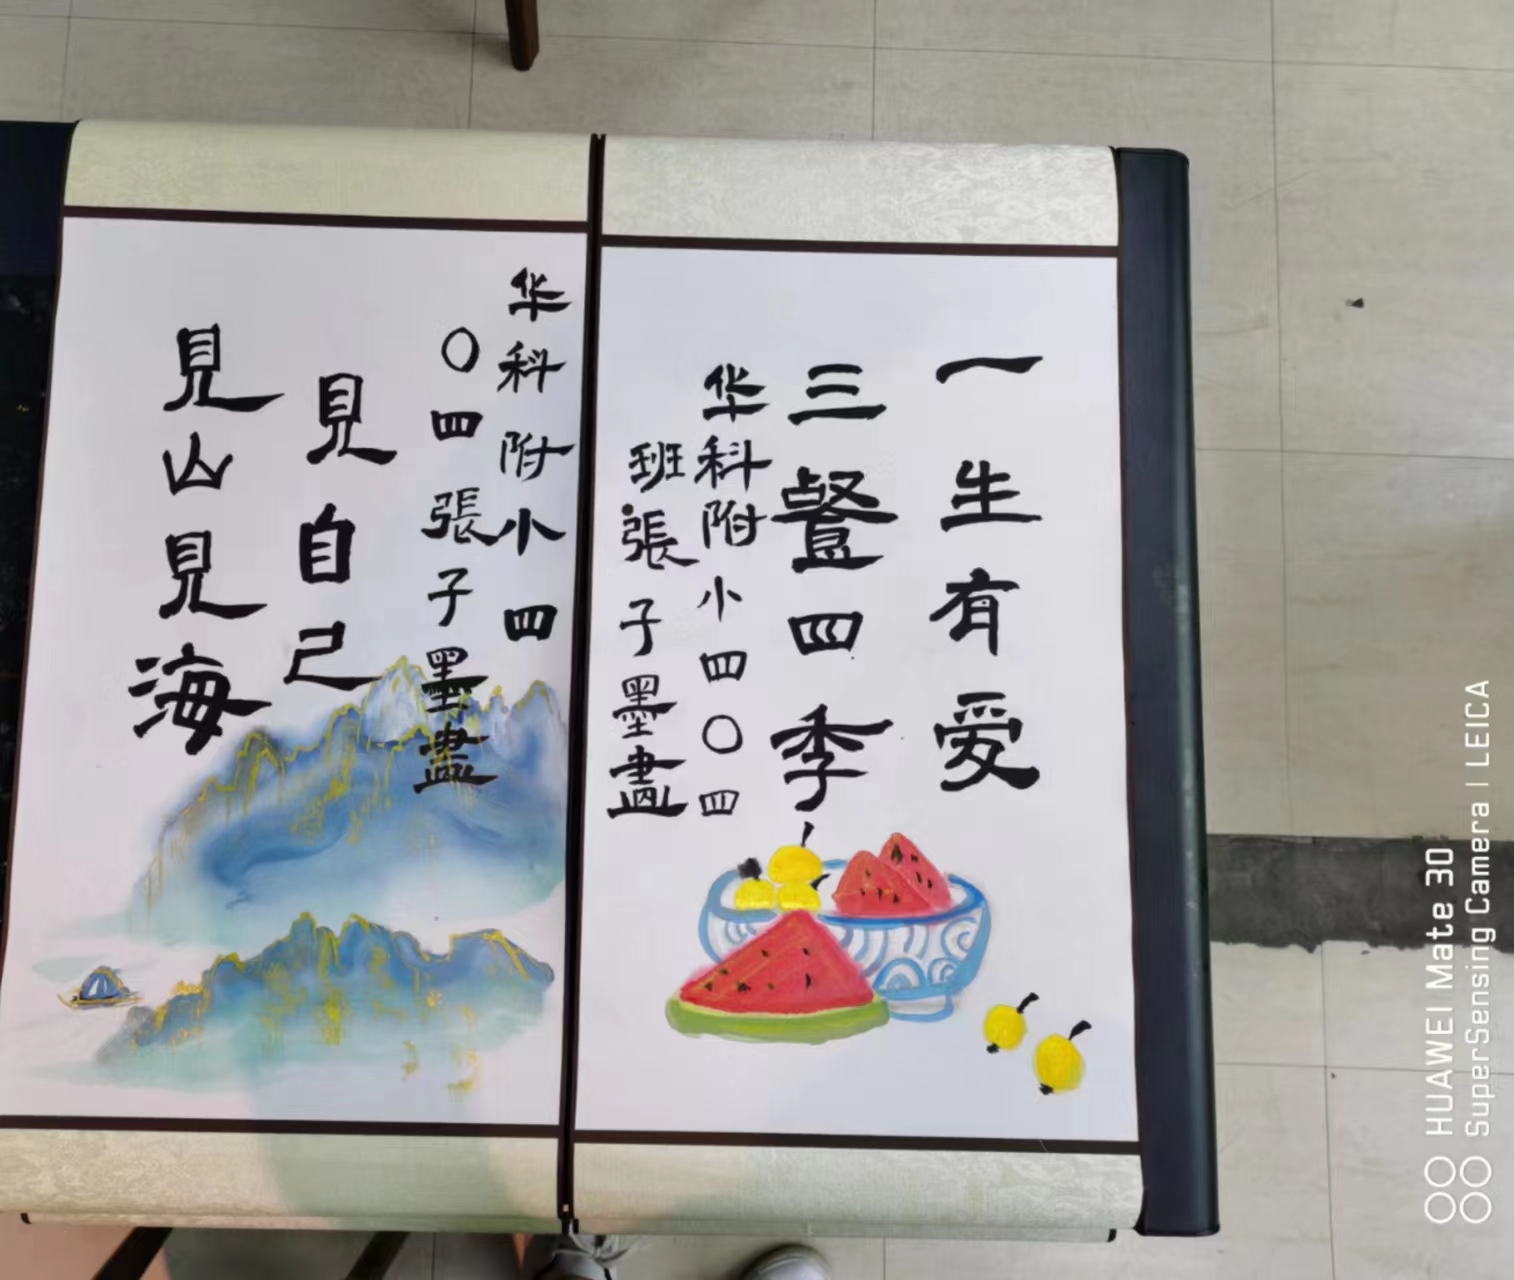 一生有爱
三餐四季
华科附小四〇四
班張子墨畫
華科附小四
〇四張子墨畫
見自己
見山見海
HUAWEI Mate 30
SuperSensing Camera | LEICA